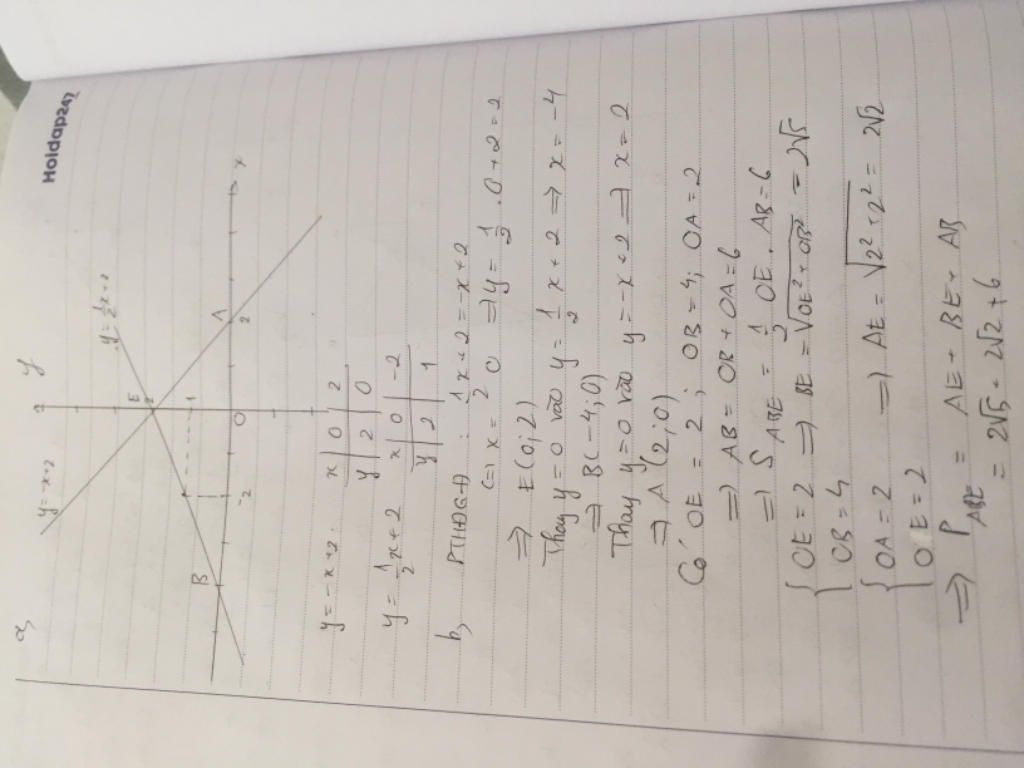 Hoidap247
a,
y
y = -x+2
y = 1/2 x+2
E
2
1
B
A
-2
O
2
x
y = -x+2: x | 0 | 2
y | 2 | 0
y = 1/2 x+2 x | 0 | -2
y | 2 | 1
b, PTHĐGĐ: 1/2 x+2 = -x+2
(=) x = 0 => y = 1/2 . 0 + 2 = 2
=> E(0; 2)
Thay y = 0 vào y = 1/2 x + 2 => x = -4
=> B(-4; 0)
Thay y = 0 vào y = -x+2 => x = 2
=> A(2; 0)
Có OE = 2; OB = 4; OA = 2
=> AB = OB + OA = 6
=> S ABE = 1/2 OE . AB = 6
{ OE = 2 => BE = √OE² + OB² = 2√5
OB = 4
{ OA = 2 => AE = √2² + 2² = 2√2
OE = 2
=> P ABE = AE + BE + AB
= 2√5 + 2√2 + 6